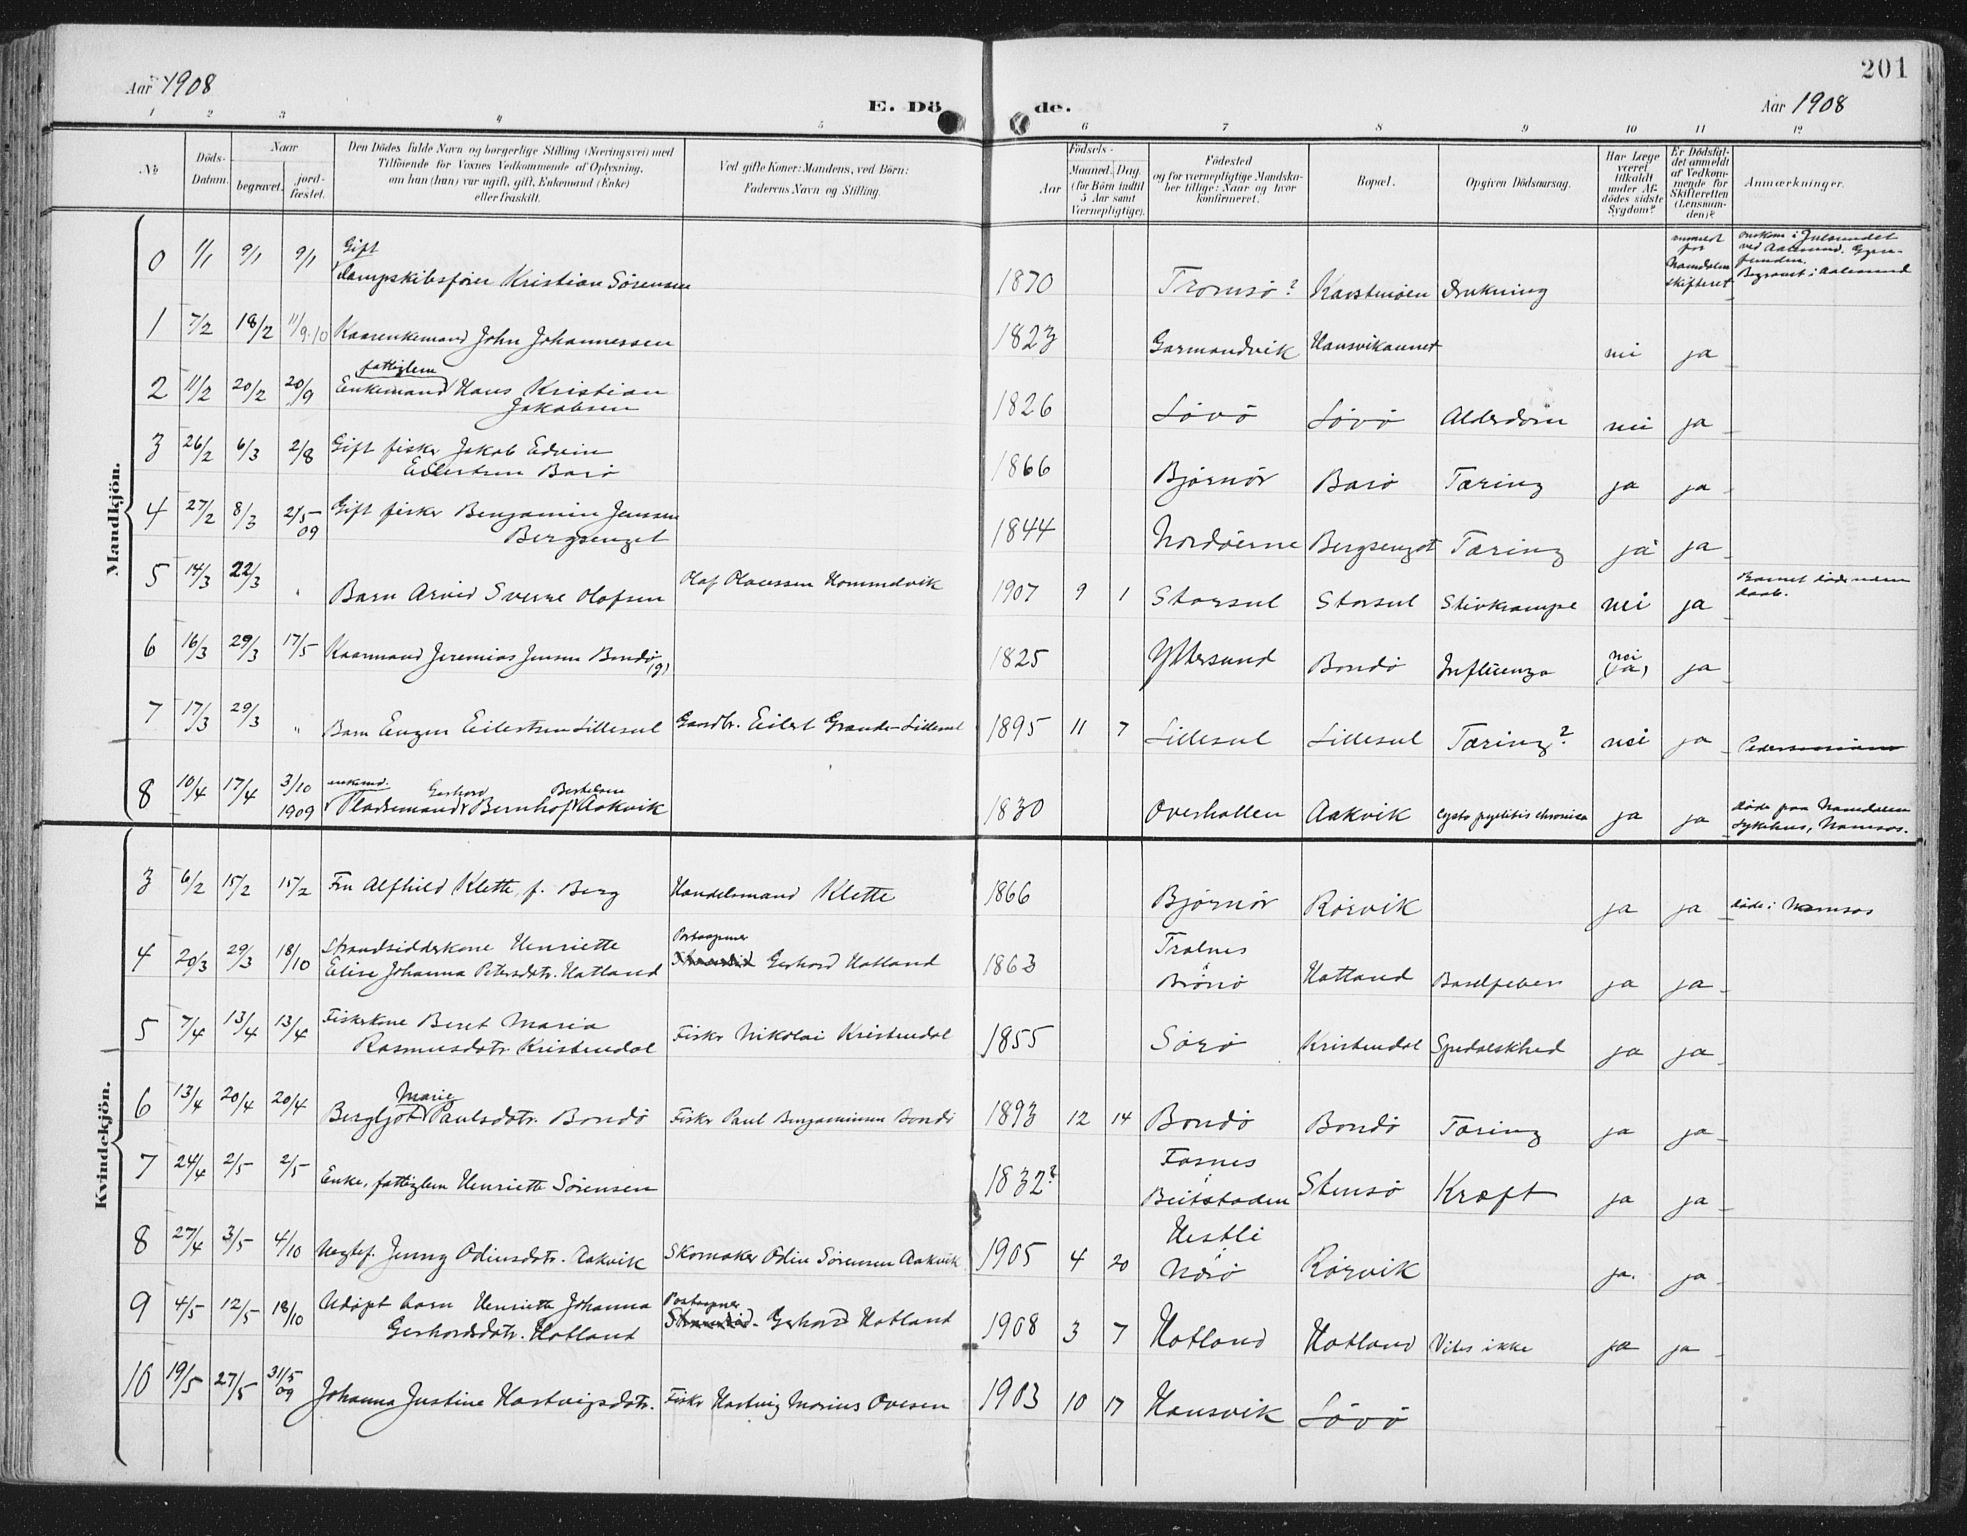 Aar 1908
E. Dö de.
201
Aar 1908
1 2 3 4 5 6 7 8 9 10 11 12
No.
Döds-
Datum.
Naar
begravet.
jord-
fæstet.
Den Dödes fulde Navn og borgerlige Stilling (Næringsvei) med
Tilföiende for Voxnes Vedkommende af Oplysning,
om han (hun) var ugift, gift, Enkemand (Enke)
eller fraskilt.
Ved gifte Koner: Mandens, ved Börn:
Faderens Navn og Stilling.
Födsels-
Aar
Maaned. Dag.
(for Börn indtil
5 Aar samt
Værnepligtige).
Födested
og for værnepligtige Mandska-
ber tillige: Naar og hvor
konfirmeret.
Bopæl.
Opgiven Dödsaarsag.
Har Læge
været
tilkaldt
under Af-
dödes sidste
Sygdom?
Er Dödsfal-
det anmeldt
af Vedkom-
mende for
Skifteretten
(Lensman-
den)?
Anmærkninger.
Mandkjön.
0 1/1 9/1 9/1 Gift
Dampskibsfører Kristian Sörensen 1870 Tromsö? Drukning
anmeldt
for
Namdalen
skifteret
ved Aalesund.
Begravet i Aalesund
1 7/2 18/2 11/9.10 Kaarenkemand John Johannessen 1823 Garmandvik Hansvikaunet nei ja
2 11/2 20/2 20/9 fattiglem
Enkemand Hans Kristian
Jakobsen 1826 Lövö Lövö Alderdom nei ja
3 26/2 6/3 2/8 Gift fisker Jakob Edvin
Eilertsen Barö 1866 Bjørnør Barö Tæring ja ja
4 27/2 8/3 2/5 09 Gift fisker Benjamin Jenssen
Bergsenget 1844 Nordöerne Bergsenget Tæring ja ja
5 14/3 22/3 " Barn Arvid Sverre Olofsen Olaf Olaussen Hommelvik 1907 9 1 Storsul Storsul Stivkrampe nei ja Barnet døde uden
daab.
6 16/3 29/3 17/5 Kaarmand Jeremias Jensen Bondö (g) 1825 Yttersund Bondö Influenza nei
(ja) ja
7 17/3 29/3 " Barn Eugen Eilertsen Lillesul Gaardbr. Eilert Grande-Lillesul 1895 11 7 Lillesul Lillesul Tæring? nei ja
8 10/4 17/4 3/10 1909 enkemd. Gerhard Bertelsen
Pladsemand Bernhof Aakvik 1830 Overhallen Aakvik Cysto pyelitis chronica ja ja døde paa Namdalens
sykehus, Namsos.
Kvindekjön.
3 6/2 15/2 15/2 Fru Alfhild Klette, f. Berg Handelsmand Klette 1866 Bjørnør Rørvik ja ja døde i Namsos
4 20/3 29/3 18/10 Strandsidderkone Henriette
Elise Johanna Petersdatr. Hatland Postaapner
Gerhard Hatland 1863 Trælnes
i
Brönö Hatland Barselfeber ja ja
5 7/4 13/4 13/4 Fiskerkone Beret Maria
Rasmusdatr. Kristendal Fisker Nikolai Kristendal 1855 Sörö Kristendal Spedalskhed ja ja
6 13/4 20/4 20/4 Marie
Bergljot Paulsdatr. Bondö Fisker Paul Benjaminsen Bondö 1893 12 14 Bondö Bondö Tæring ja ja
7 24/4 2/5 2/5 Enke, fattiglem Henriette Sörensen 1832? Fosnes
i
Beitstaden Stensö Kræft ja ja
8 27/4 3/5 4/10 Uegtef. Jenny Odinsdatr. Aakvik Skomaker Odin Sörensen Aakvik 1905 4 20 Hestli
i
Nærö Rørvik ja. ja
9 4/5 12/5 18/10 Udøpt barn Henriette Johanna
Gerhardsdatr. Hatland Postaapner
Gerhard Hatland 1908 3 7 Hatland Hatland Vides ikke ja ja
10 19/5 27/5 31/5 09 Johanna Justine Hartvigsdatr. Fisker Hartvig Marius Ovesen 1903 10 17 Hansvik Lövö